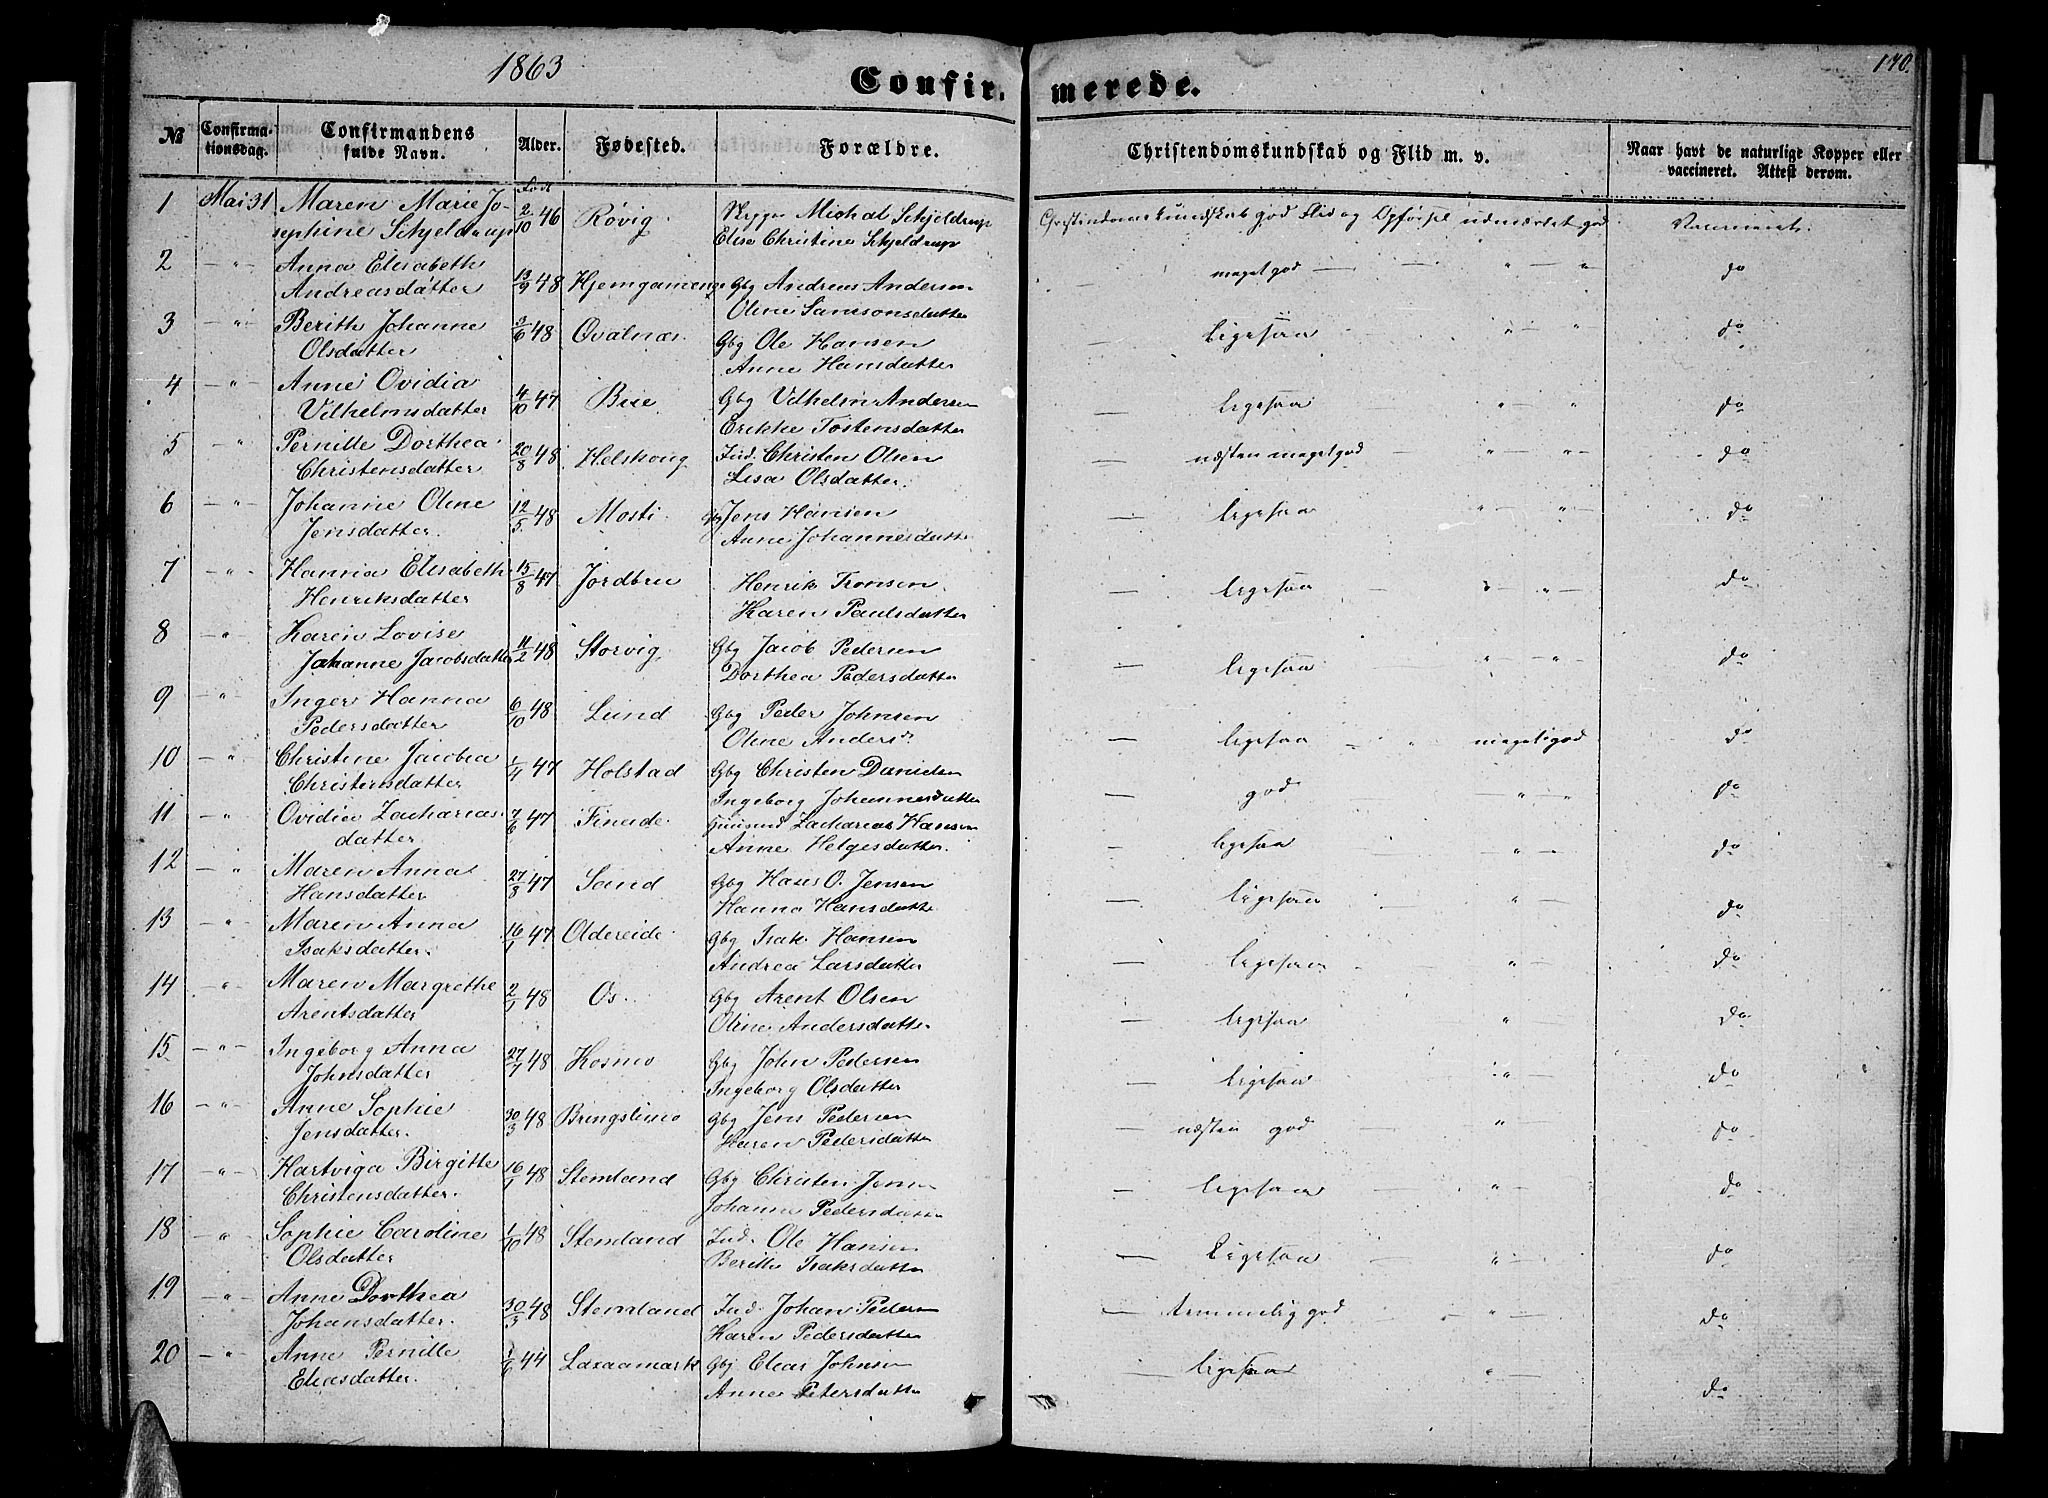 1863
170.
Confir-merede.
№
Confirma-
tionsdag.
Confirmandens
fulde Navn.
Alder.
Fødested.
Forældre.
Christendomskundskab og Flid m. v.
Naar havt de naturlige Kopper eller
vaccineret. Attest derom.
1 Mai 31 Maren Marie Jo- Født 2/10 46 Røvig Michal Schjeldrup Christendomskundskab god Flid og Opførsel udmærket god Vaccineret.
sephine Schjeldrup Elise Christine Schjeldrup
2 — " — Anna Elisabeth 13/9 48 Gbg Andreas Andersen — meget god — — " — " do
Andreasdatter Oline Samsonsdatter
3 — " — Berith Johanne 3/6 48 Øvalnæs Gbg Ole Hansen — ligesaa " — " do
Olsdatter Anne Hansdatter
4 — " — Anne Ovidia 4/10 47 Bue Gbg Vilhelm Andersen — ligesaa — " — " do
Vilhelmsdatter Erikke Tostensdatter
5 " Pernille Dorthea 20/8 48 Ind. Christen Olsen — næsten meget god " — " — do
Christensdatter Lisa Olsdatter.
6 — " — Johanne Oline 12/5 48 Mosti Gbg Jens Hansen — ligesaa " — " — do
Jensdatter. Anne Johannesdatter
7 — " — Hanna Elisabeth 15/8 47 Jordbru Henrik Tronsen — ligesaa — " — " — do
Henriksdatter Karen Paulsdatter
8 — " Karen Lovise 11/2 48 Storvig Gbg Jacob Pedersen — ligesaa " — " — do
Johanne Jacobsdatter Dorthea Pedersdatter
9 — " — Inger Hanna 6/10 48 Lund Gbg Peder Johnsen — ligesaa — " meget god do
Pedersdatter Oline Andersd.
10 — " Christine Jacobea 1/4 47 Holstad Gbg Christen Danielsen — god — " — " do
Christensdatter Ingeborg Johannesdatter
11 — " Ovidia Zacharias- 7/6 47 Fineide Zacharias Hansen — ligesaa — " — do
datter Anne Helgesdatter.
12 — " Maren Anna 27/8 47 Sand Gbg Hans O. Jensen — ligesaa — " — do
Hansdatter Hanna Hansdatter
13 — " Maren Anna 16/1 47 Oldereide Gbg Isak Hansen — ligesaa — " do
Isaksdatter. Andrea Larsdatter
14 — " — Maren Margrethe 2/1 48 Os. Gbg Arent Olsen — ligesaa — " do
Arentsdatter Oline Andersdatter
15 — " — Ingeborg Anna 27/7 48 Kosmo Gbg John Pedersen — ligesaa — " — do
Johnsdatter Ingeborg Olsdatter
16 — " — Anne Sophie 30/3 48 Bringslimo Gbg Jens Pedersen — næsten god — " do
Jensdatter. Karen Pedersdatter
17 — " — Hartviga Birgitte 16/1 48 Stemland Gbg Christen — ligesaa — " — do
Christensdatter. Johanna Pedersdatter
18 " Sophie Caroline 1/10 48 Stemland Ind. Ole Hansen — ligesaa — " — do
Olsdatter Berith Isaksdatter
19 — " — Anne Dorthea 30/3 48 Stemland Ind. Johan Pedersen — temmelig god — " — do
Johansdatter. Karen Pedersdatter
20 — " — Anne Pernille 1/6 44 Laxaamark Gbg Elias Johnsen — ligesaa " — do
Eliasdatter. Anne Petersdatter